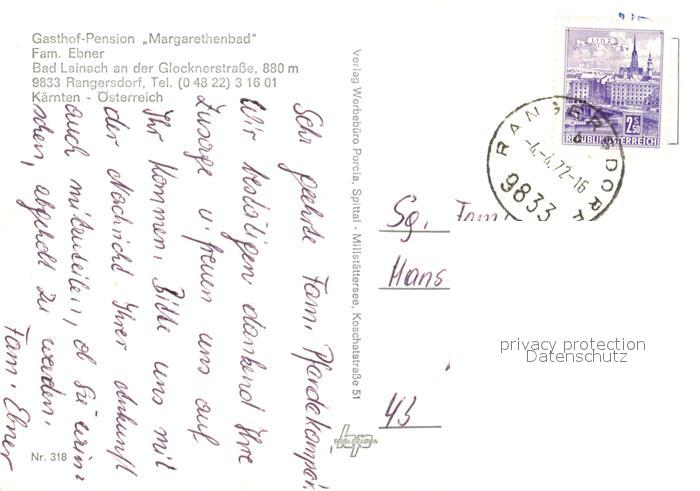 Gasthof-Pension „Margarethenbad"
Fam. Ebner
Bad Lainach an der Glocknerstraße, 880 m
9833 Rangersdorf, Tel. (0 48 22) 3 16 01
Kärnten - Österreich
Sehr geehrte Fam. Pfardekamper!
Wir bestätigen dankend Ihre
Zusage u. freuen uns auf
Ihr Kommen. Bitte uns mit
der Nachricht Ihrer Ankunft
auch mitzuteilen, ob Sie wün-
schen, abgeholt zu werden.
Fam. Ebner
Nr. 318
Verlag Werbebüro Porcia, Spittal - Millstättersee, Koschatstraße 51
LINZ
2.50
REPUBLIK ÖSTERREICH
RANGERSDORF
-4.-4.72-16
9833
Sg. Fam.
Hans
43
privacy protection
Datenschutz